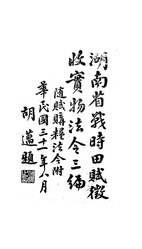 湖南省戰時田賦徵
收實物法令三編
隨賦購糧法令附
華民國三十一年八月
胡邁題